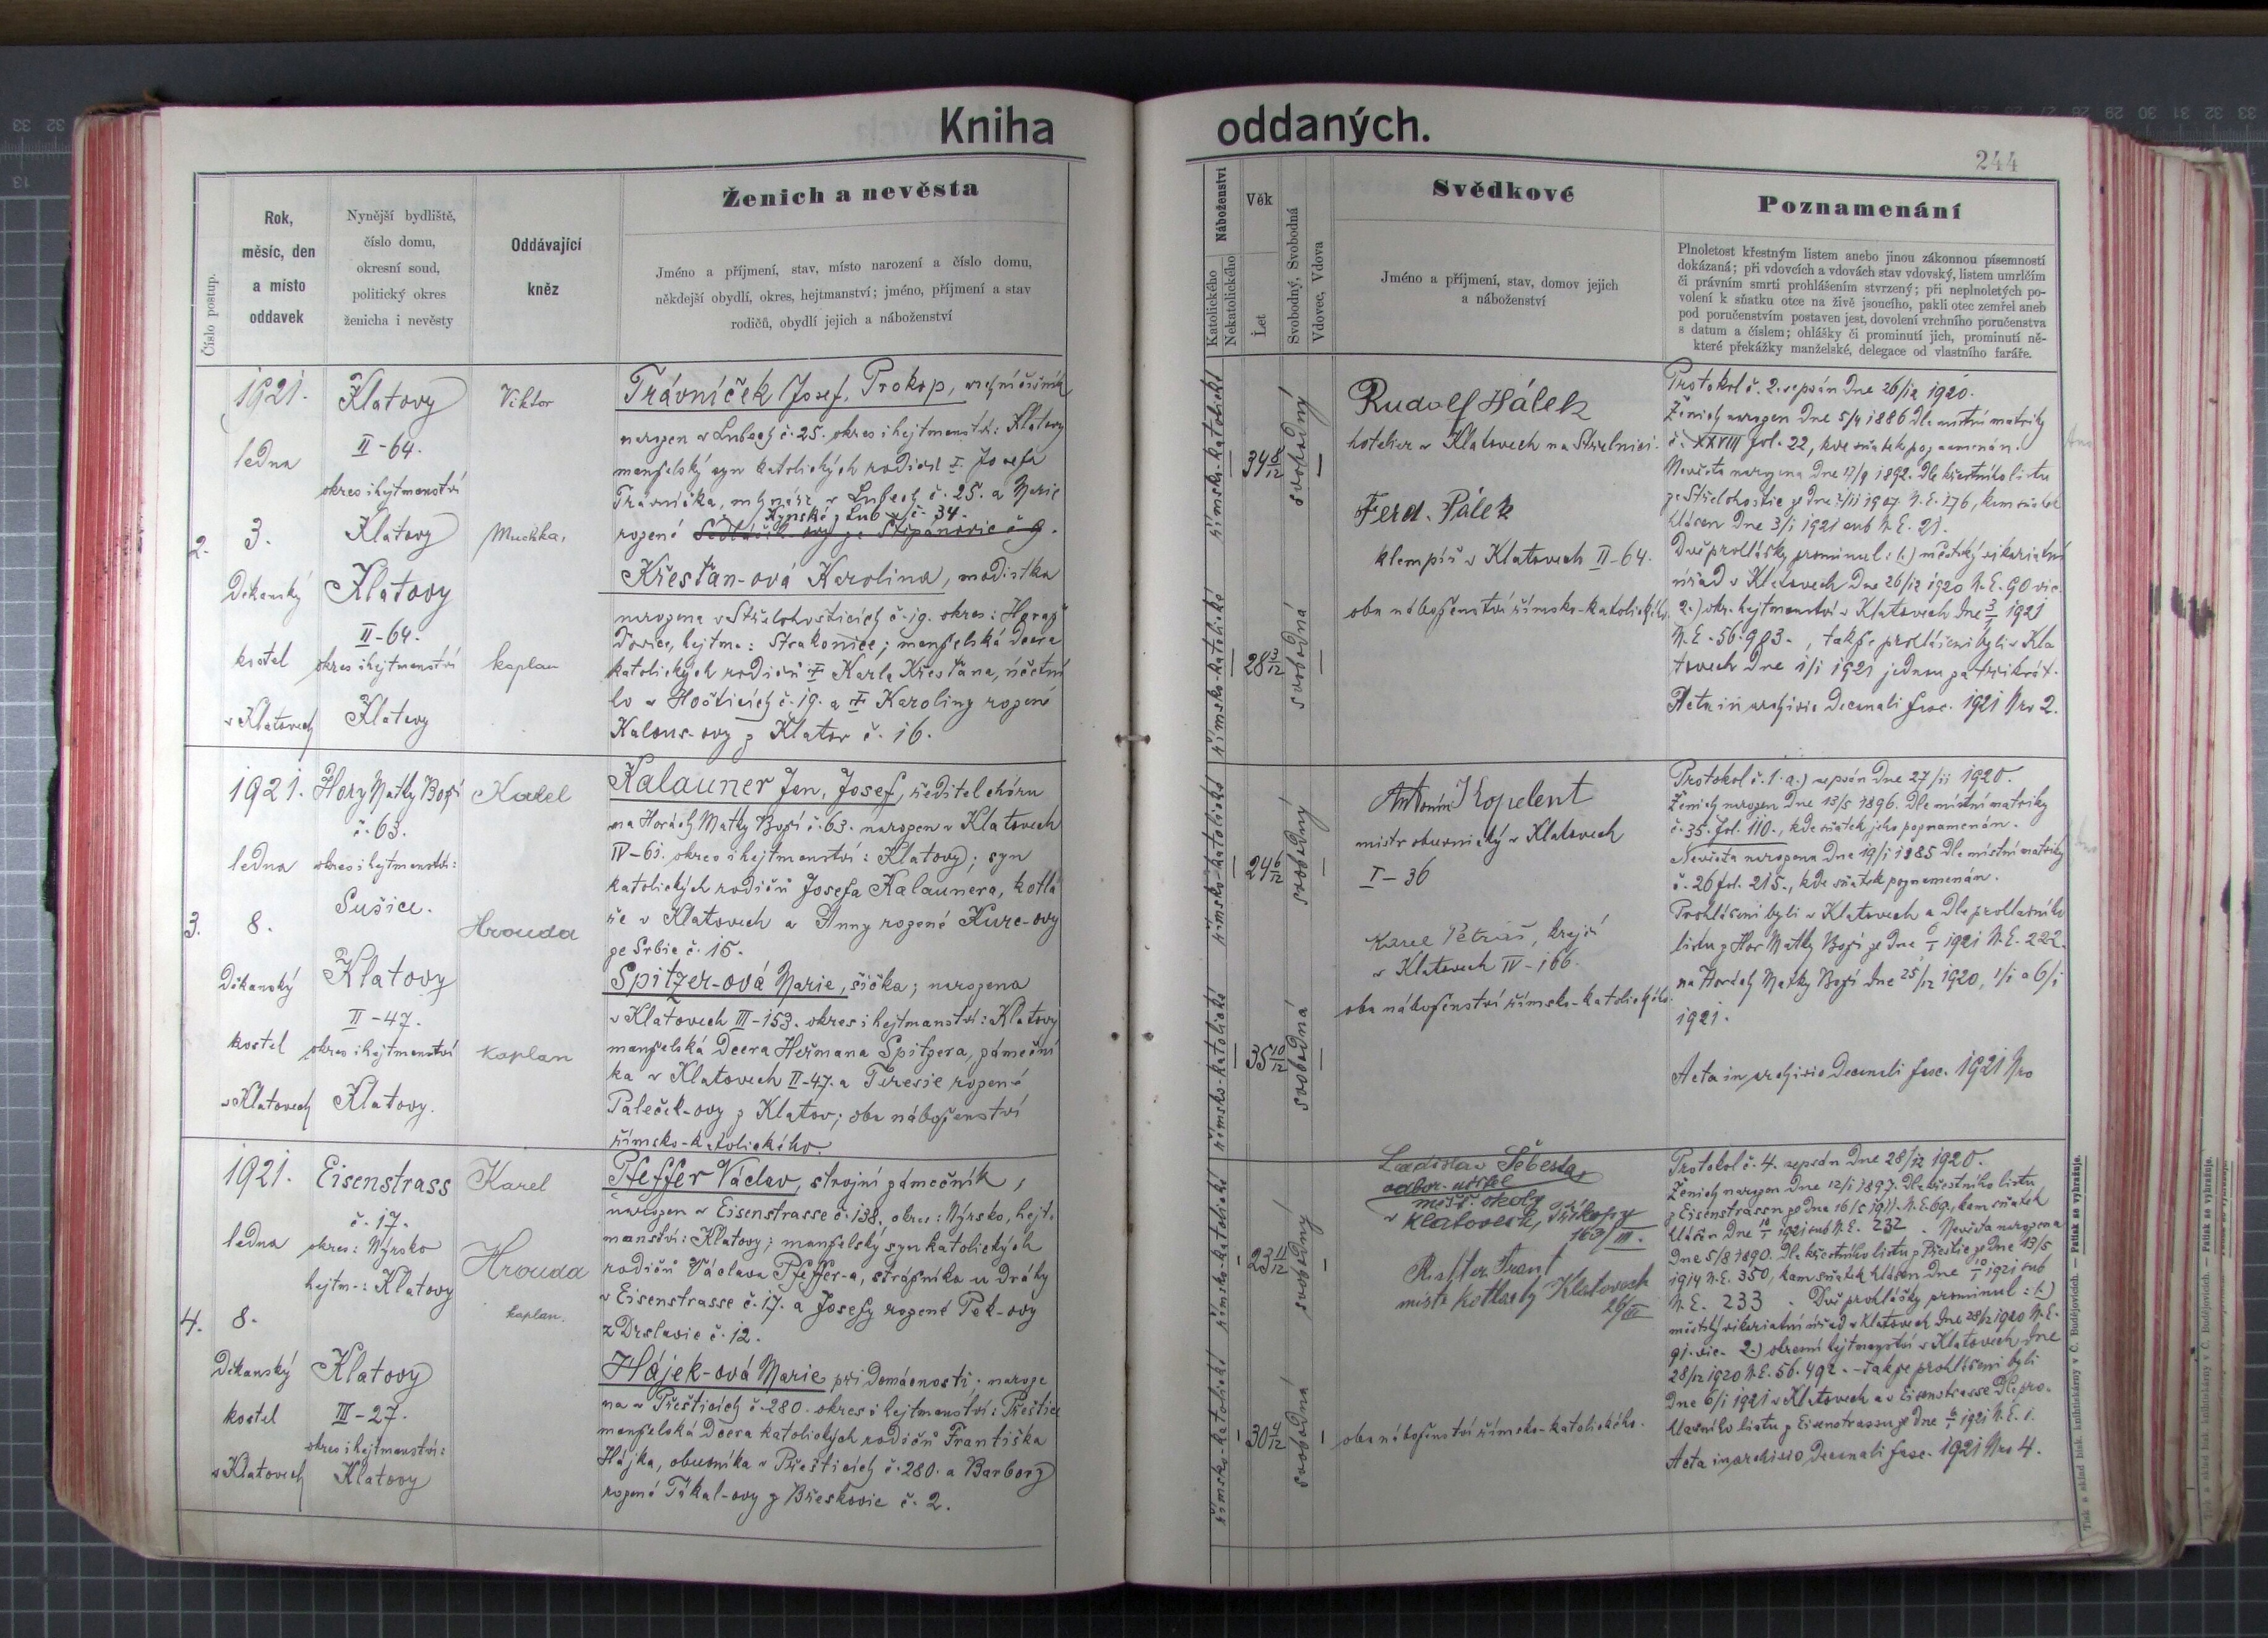 Kniha oddaných.
244
Číslo postup.
Rok,
měsíc, den
a místo
oddavek
Nynější bydliště,
číslo domu,
okresní soud,
politický okres
ženicha i nevěsty
Oddávající
kněz
Ženich a nevěsta
Jméno a příjmení, stav, místo narození a číslo domu,
někdejší obydlí, okres, hejtmanství; jméno, příjmení a stav
rodičů, obydlí jejich a náboženství
Náboženství
Katolického
Nekatolického
Věk
Let
Svobodný, Svobodná
Vdovec, Vdova
Svědkové
Jméno a příjmení, stav, domov jejich
a náboženství
Poznamenání
Plnoletost křestným listem anebo jinou zákonnou písemností
dokázaná; při vdovcích a vdovách stav vdovský, listem umrlčím
či právním smrti prohlášením stvrzený; při neplnoletých po-
volení k sňatku otce na živě jsoucího, pakli otec zemřel aneb
pod poručenstvím postaven jest, dovolení vrchního poručenstva
s datum a číslem; ohlášky či prominutí jich, prominutí ně-
které překážky manželské, delegace od vlastního faráře.
2.
1921.
ledna
3.
Děkanský
kostel
v Klatovech
Klatovy
II-64.
okres i hejtmanství
Klatovy
Klatovy
II-64.
okres i hejtmanství
Klatovy
Viktor
Muchka,
kaplan
Trávníček Josef, Prokop, vrchní číšník
narozen v Lubech č. 25. okres i hejtmanství: Klatovy
manželský syn katolických rodičů † Josefa
Trávníčka, mlynáře v Lubech č. 25. a Marie
z Lub č. 34.
rozené Sedláčk-ovy ze Štěpánovic č. 9.
Křesťan-ová Karolina, modistka
narozena v Střelohosticích č. 19. okres: Horaž
ďovice, hejtm.: Strakonice; manželská dcera
katolických rodičů † Karla Křesťana,
v Hošticích č. 19. a † Karoliny rozené
Kalous-ovy z Klatov č. 16.
římsko-katolické
římsko-katolické
34 8/12
28 3/12
svobodný
svobodná
Rudolf Hálek
hotelier v Klatovech na Střelnici.
Ferd. Pálek
klempíř v Klatovech II-64.
oba náboženství římsko-katolického.
Protokol č. 2. sepsán dne 26/12 1920.
Ženich narozen dne 5/4 1886 dle místní matriky
č. XXVIII fol. 22, kde sňatek poznamenán.
Nevěsta narozena dne 17/9 1892. dle křestního listu
ze Střelohostic ze dne 2/11 1907. N. E. 176, kam sňatek
hlášen dne 3/1 1921 sub N. E. 21.
Dvě prohlášky prominul: 1.) městský vikariatní
úřad v Klatovech dne 26/12 1920 N. E. 90 vic.
2.) okr. hejtmanství v Klatovech dne 3/1 1921
N. E. 56.983., takže prohlášeni byli v Kla
tovech dne 1/1 1921 jednou za třikrát.
Acta in archivio decanali fasc. 1921 Nro 2.
3.
1921.
ledna
8.
Děkanský
kostel
v Klatovech
Hory Matky Boží
č. 63.
okres i hejtmanství:
Sušice.
Klatovy
II-47.
okres i hejtmanství
Klatovy.
Karel
Hrouda
kaplan
Kalauner Jan, Josef, ředitel chóru
na Horách Matky Boží č. 63. narozen v Klatovech
IV-61. okres i hejtmanství: Klatovy; syn
katolických rodičů Josefa Kalaunera, kotlá
ře v Klatovech a Anny rozené Kurc-ovy
ze Srbic č. 15.
Spitzer-ová Marie, šička; narozena
v Klatovech III-153. okres i hejtmanství: Klatovy
manželská dcera Heřmana Spitzera, zámeční
ka v Klatovech II-47. a Teresie rozené
Paleček-ovy z Klatov; oba náboženství
římsko-katolického.
římsko-katolické
římsko-katolické
24 6/12
35 10/12
svobodný
svobodná
Antonín Kopelent
mistr obuvnický v Klatovech
I-36
Karel Petráš, krejčí
v Klatovech IV-166.
oba náboženství římsko-katolického.
Protokol č. 1. a.) sepsán dne 27/11 1920.
Ženich narozen dne 13/5 1896. dle místní matriky
č. 35. fol. 110., kde sňatek jeho poznamenán.
Nevěsta narozena dne 19/1 1885 dle místní matriky
č. 26 fol. 215., kde sňatek poznamenán.
Prohlášeni byli v Klatovech a dle prohlasního
listu z Hor Matky Boží ze dne 6/1 1921 N. E. 222.
na Horách Matky Boží dne 25/12 1920, 1/1 a 6/1
1921.
Acta in archivio decanali fasc. 1921 Nro
4.
1921.
ledna
8.
Děkanský
kostel
v Klatovech
Eisenstrass
č. 17.
okres: Nýrsko
hejtm.: Klatovy
Klatovy
III-27.
okres i hejtmanství:
Klatovy
Karel
Hrouda
kaplan.
Pfeffer Václav, strojní zámečník,
narozen v Eisenstrasse č. 138., okres: Nýrsko, hejt.
manství: Klatovy; manželský syn katolických
rodičů Václava Pfeffer-a, strážníka u dráhy
v Eisenstrasse č. 17. a Josefy rozené Pek-ovy
z Drslavic č. 12.
Hájek-ová Marie při domácnosti; naroze
na v Přešticích č. 280. okres i hejtmanství: Přeštice
manželská dcera katolických rodičů Františka
Hájka, obuvníka v Přešticích č. 280. a Barbory
rozené Tákal-ovy z Břeskovic č. 2.
římsko-katolické
římsko-katolické
23 11/12
30 4/12
svobodný
svobodná
Ladislav Šebesta,
odbor. učitel
měšť. školy
v Klatovech, Příkopy
163/III.
Frant
mistr kotlařský Klatovech
26/III
oba náboženství římsko-katolického.
Protokol č. 4. sepsán dne 28/12 1920.
Ženich narozen dne 12/1 1897. dle křestního listu
z Eisenstrassu ze dne 16/5 1911. N. E. 69., kam sňatek
hlášen dne 10/1 1921 sub N. E. 232. Nevěsta narozena
dne 5/8 1890. dle křestního listu z Přeštic ze dne 13/5
1914 N. E. 350, kam sňatek hlášen dne 10/1 1921 sub
N. E. 233. Dvě prohlášky prominul: 1.)
městský vikariatní úřad v Klatovech dne 28/12 1920 N. E.
91. vic. 2.) okresní hejtmanství v Klatovech dne
28/12 1920 N. E. 56.492. - takže prohlášeni byli
dne 6/1 1921 v Klatovech a v Eisenstrasse dle pro-
hlasního listu z Eisenstrassu ze dne 6/1 1921 N. E. 1.
Acta in archivio decanali fasc. 1921 Nro 4.
Tisk a sklad bisk. knihtiskárny v Č. Budějovicích. — Patisk se vyhražuje.